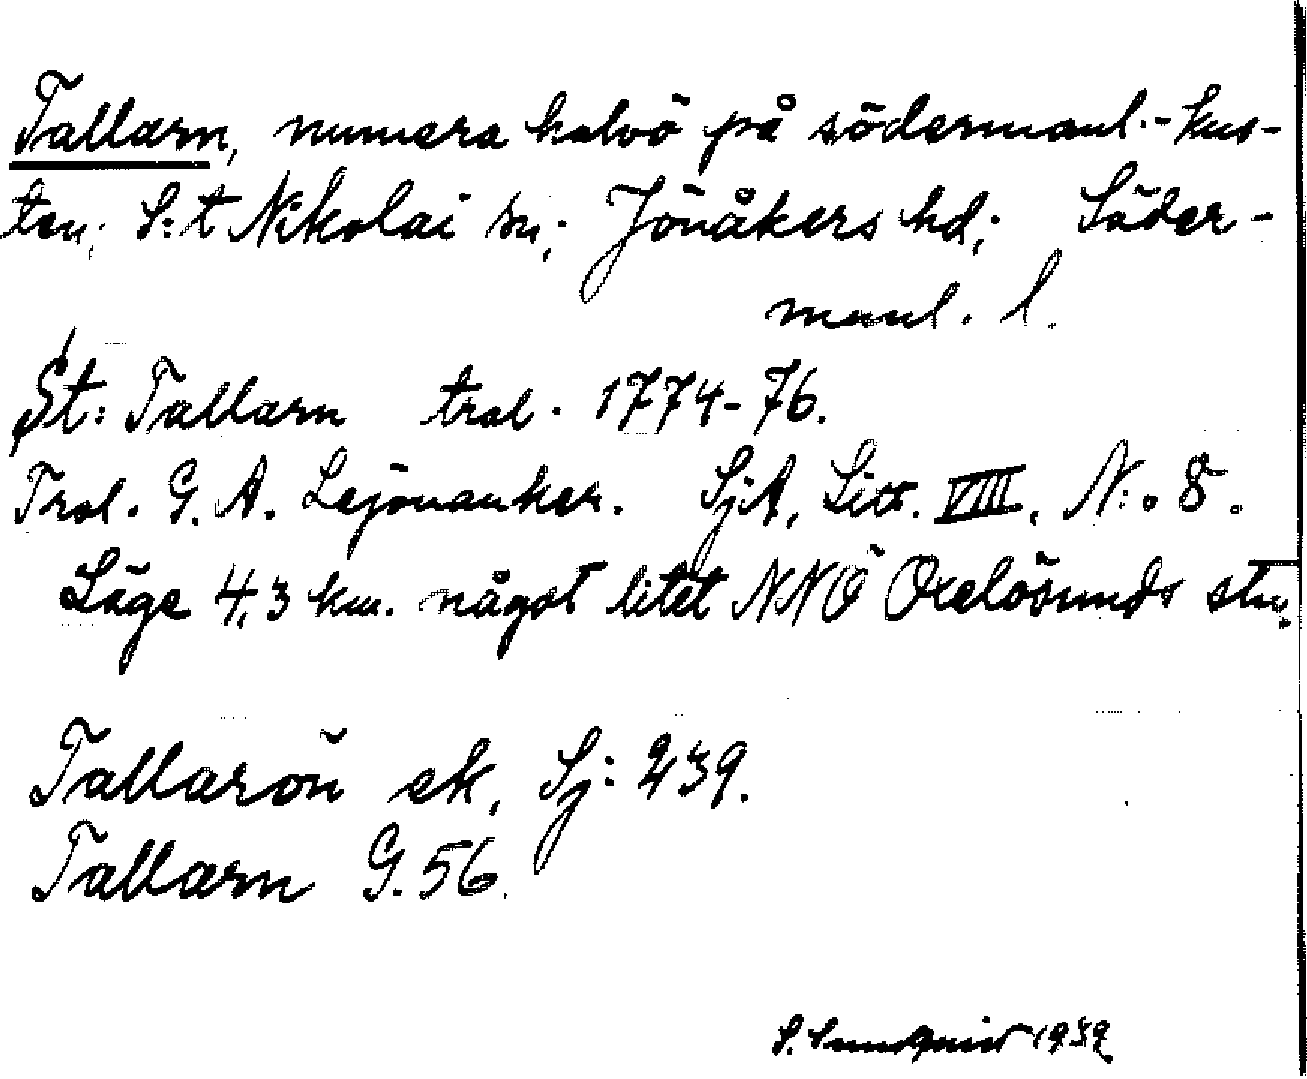 Tallarn, numera halvö på södermanl.-kus-
ten; S:t Nikolai sn; Jönåkers hd; Söder-
manl. l.
St: Tallarn trol. 1774-76.
Trol. G. A. Lejonanker. SjA, Litt. VIII, N:o 8.
Läge 4,3 km. något litet NNÖ Oxelösunds stn.
Tallarön ek, Sj: 239.
Tallarn G. 56.
S. Sundquist 1939